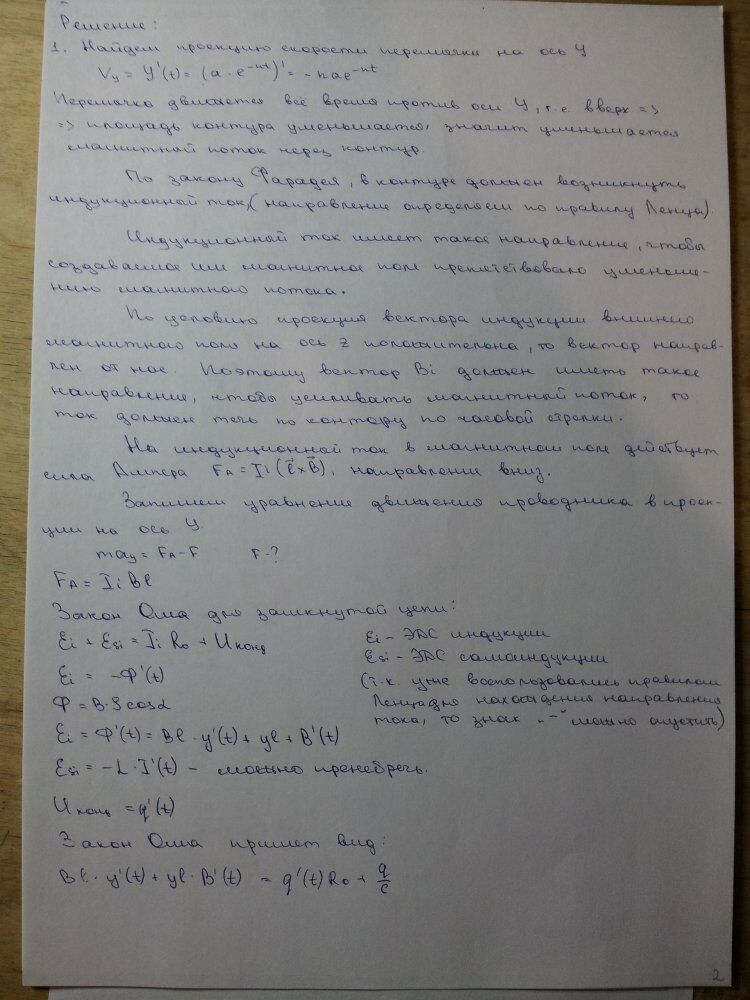 Решение:
1. Найдем проекцию скорости перемычки на ось У
Vy = У'(t) = (a · e^-nt)' = -nae^-nt
Перемычка движется всё время против оси У, т.е. вверх =>
=> площадь контура уменьшается, значит уменьшается
магнитный поток через контур.
По закону Фарадея, в контуре должен возникнуть
индукционной ток, (направление определяем по правилу Ленца).
Индукционный ток имеет такое направление, чтобы
создаваемое им магнитное поле препятствовало уменьше-
нию магнитного потока.
По условию проекция вектора индукции внешнего
магнитного поля на ось Z положительна, то вектор направ-
лен от нас. Поэтому вектор Bi должен иметь такое
направление, чтобы усиливать магнитный поток, то
ток должен течь по контуру по часовой стрелки.
На индукционной ток в магнитном поле действует
сила Ампера FA = Ii (l⃗ x B⃗), направление вниз.
Запишем уравнение движения проводника в проек-
ции на ось У.
may = FA - F F - ?
FA = Ii Bl
Закон Ома для замкнутой цепи:
Ei + Esi = Ii Ro + Uконд
Ei - ЭДС индукции
Esi - ЭДС самоиндукции
(т.к. уже воспользовались правилом
Ленца для нахождения направления
тока, то знак „-" можно опустить)
Ei = -Ф'(t)
Ф = B · S cosα
Ei = Ф'(t) = Bl · y'(t) + yl + B'(t)
Esi = -L · I'(t) - можно пренебречь.
Uконд = q'(t)
Закон Ома примет вид:
Bl · y'(t) + yl · B'(t) = q'(t) Ro + q/c
2